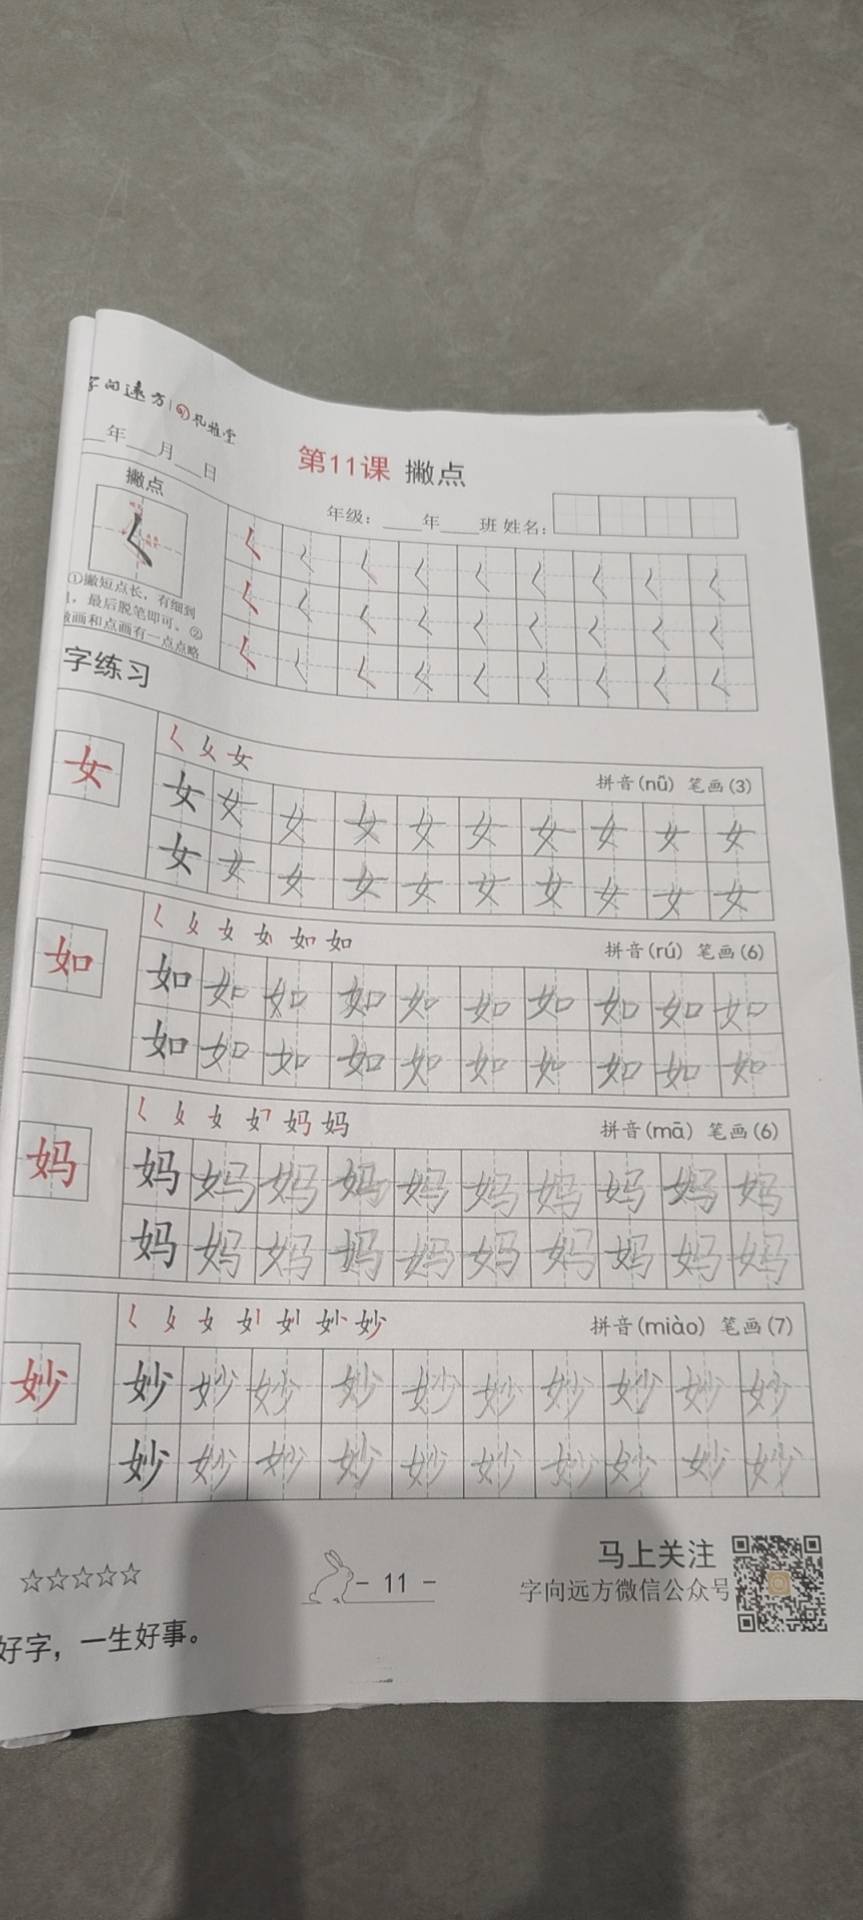 字向远方 礼雅堂
年 月 日
第11课 撇点
年级： 年 班 姓名：
撇点
①撇短点长，有细到
，最后脱笔即可。②
撇画和点画有一点点略
字练习
女
𡿨 女 女
拼音(nǚ) 笔画(3)
女 女 女 女 女 女 女 女 女 女
女 女 女 女 女 女 女 女 女 女
如
女 女 如 如
拼音(rú) 笔画(6)
如 如 如 如 如 如 如 如 如 如
如 如 如 如 如 如 如 如 如 如
妈
女 妈 妈
拼音(mā) 笔画(6)
妈 妈 妈 妈 妈 妈 妈 妈 妈 妈
妈 妈 妈 妈 妈 妈 妈 妈 妈 妈
妙
女 妙 妙
拼音(miào) 笔画(7)
妙 妙 妙 妙 妙 妙 妙 妙 妙 妙
妙 妙 妙 妙 妙 妙 妙 妙 妙 妙
☆☆☆☆☆
- 11 -
马上关注
字向远方微信公众号
好字，一生好事。